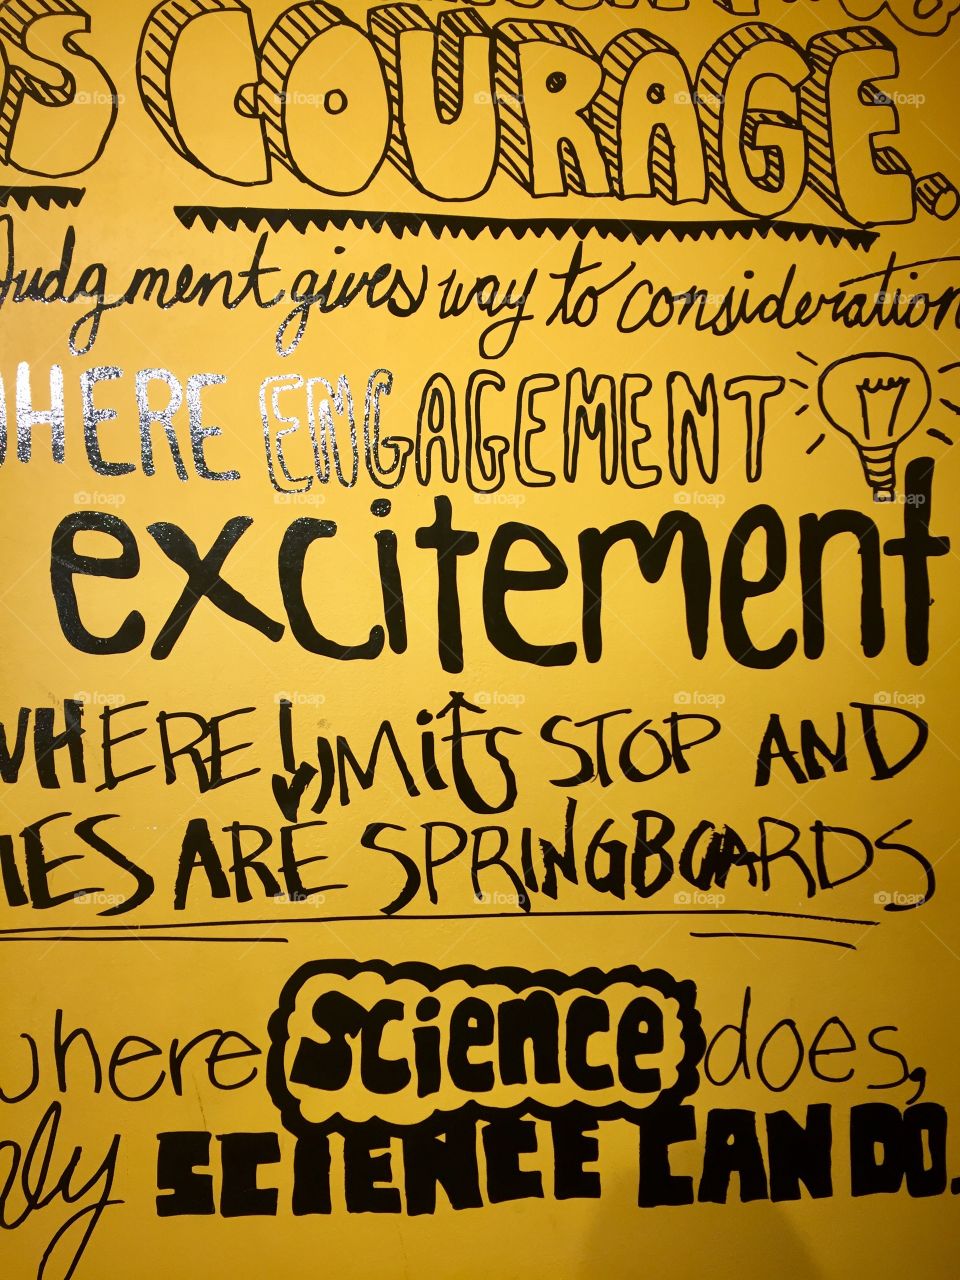 S COURAGE.
Judgment gives way to consideration
WHERE ENGAGEMENT
excitement
WHERE LIMITS STOP AND
IES ARE SPRINGBOARDS
where science does,
only SCIENCE CAN DO.